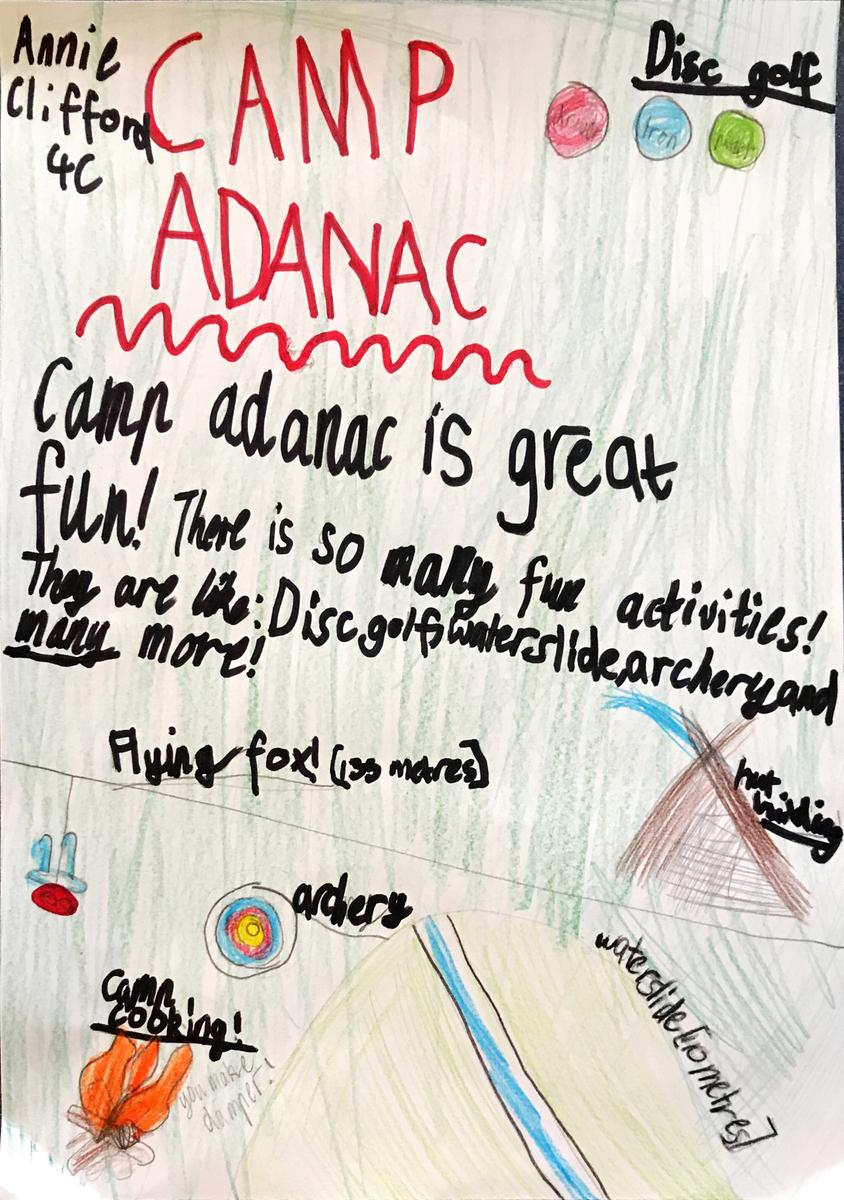 Annie
Clifford
4C
CAMP
ADANAC
Disc golf
Iron
Camp adanac is great
fun! There is so many fun activities!
They are like: Disc golf, waterslide, archery and
many more!
Flying fox! (135 metres)
hut
building
archery
waterslide [110 metres]
camp
cooking!
you make
damper!